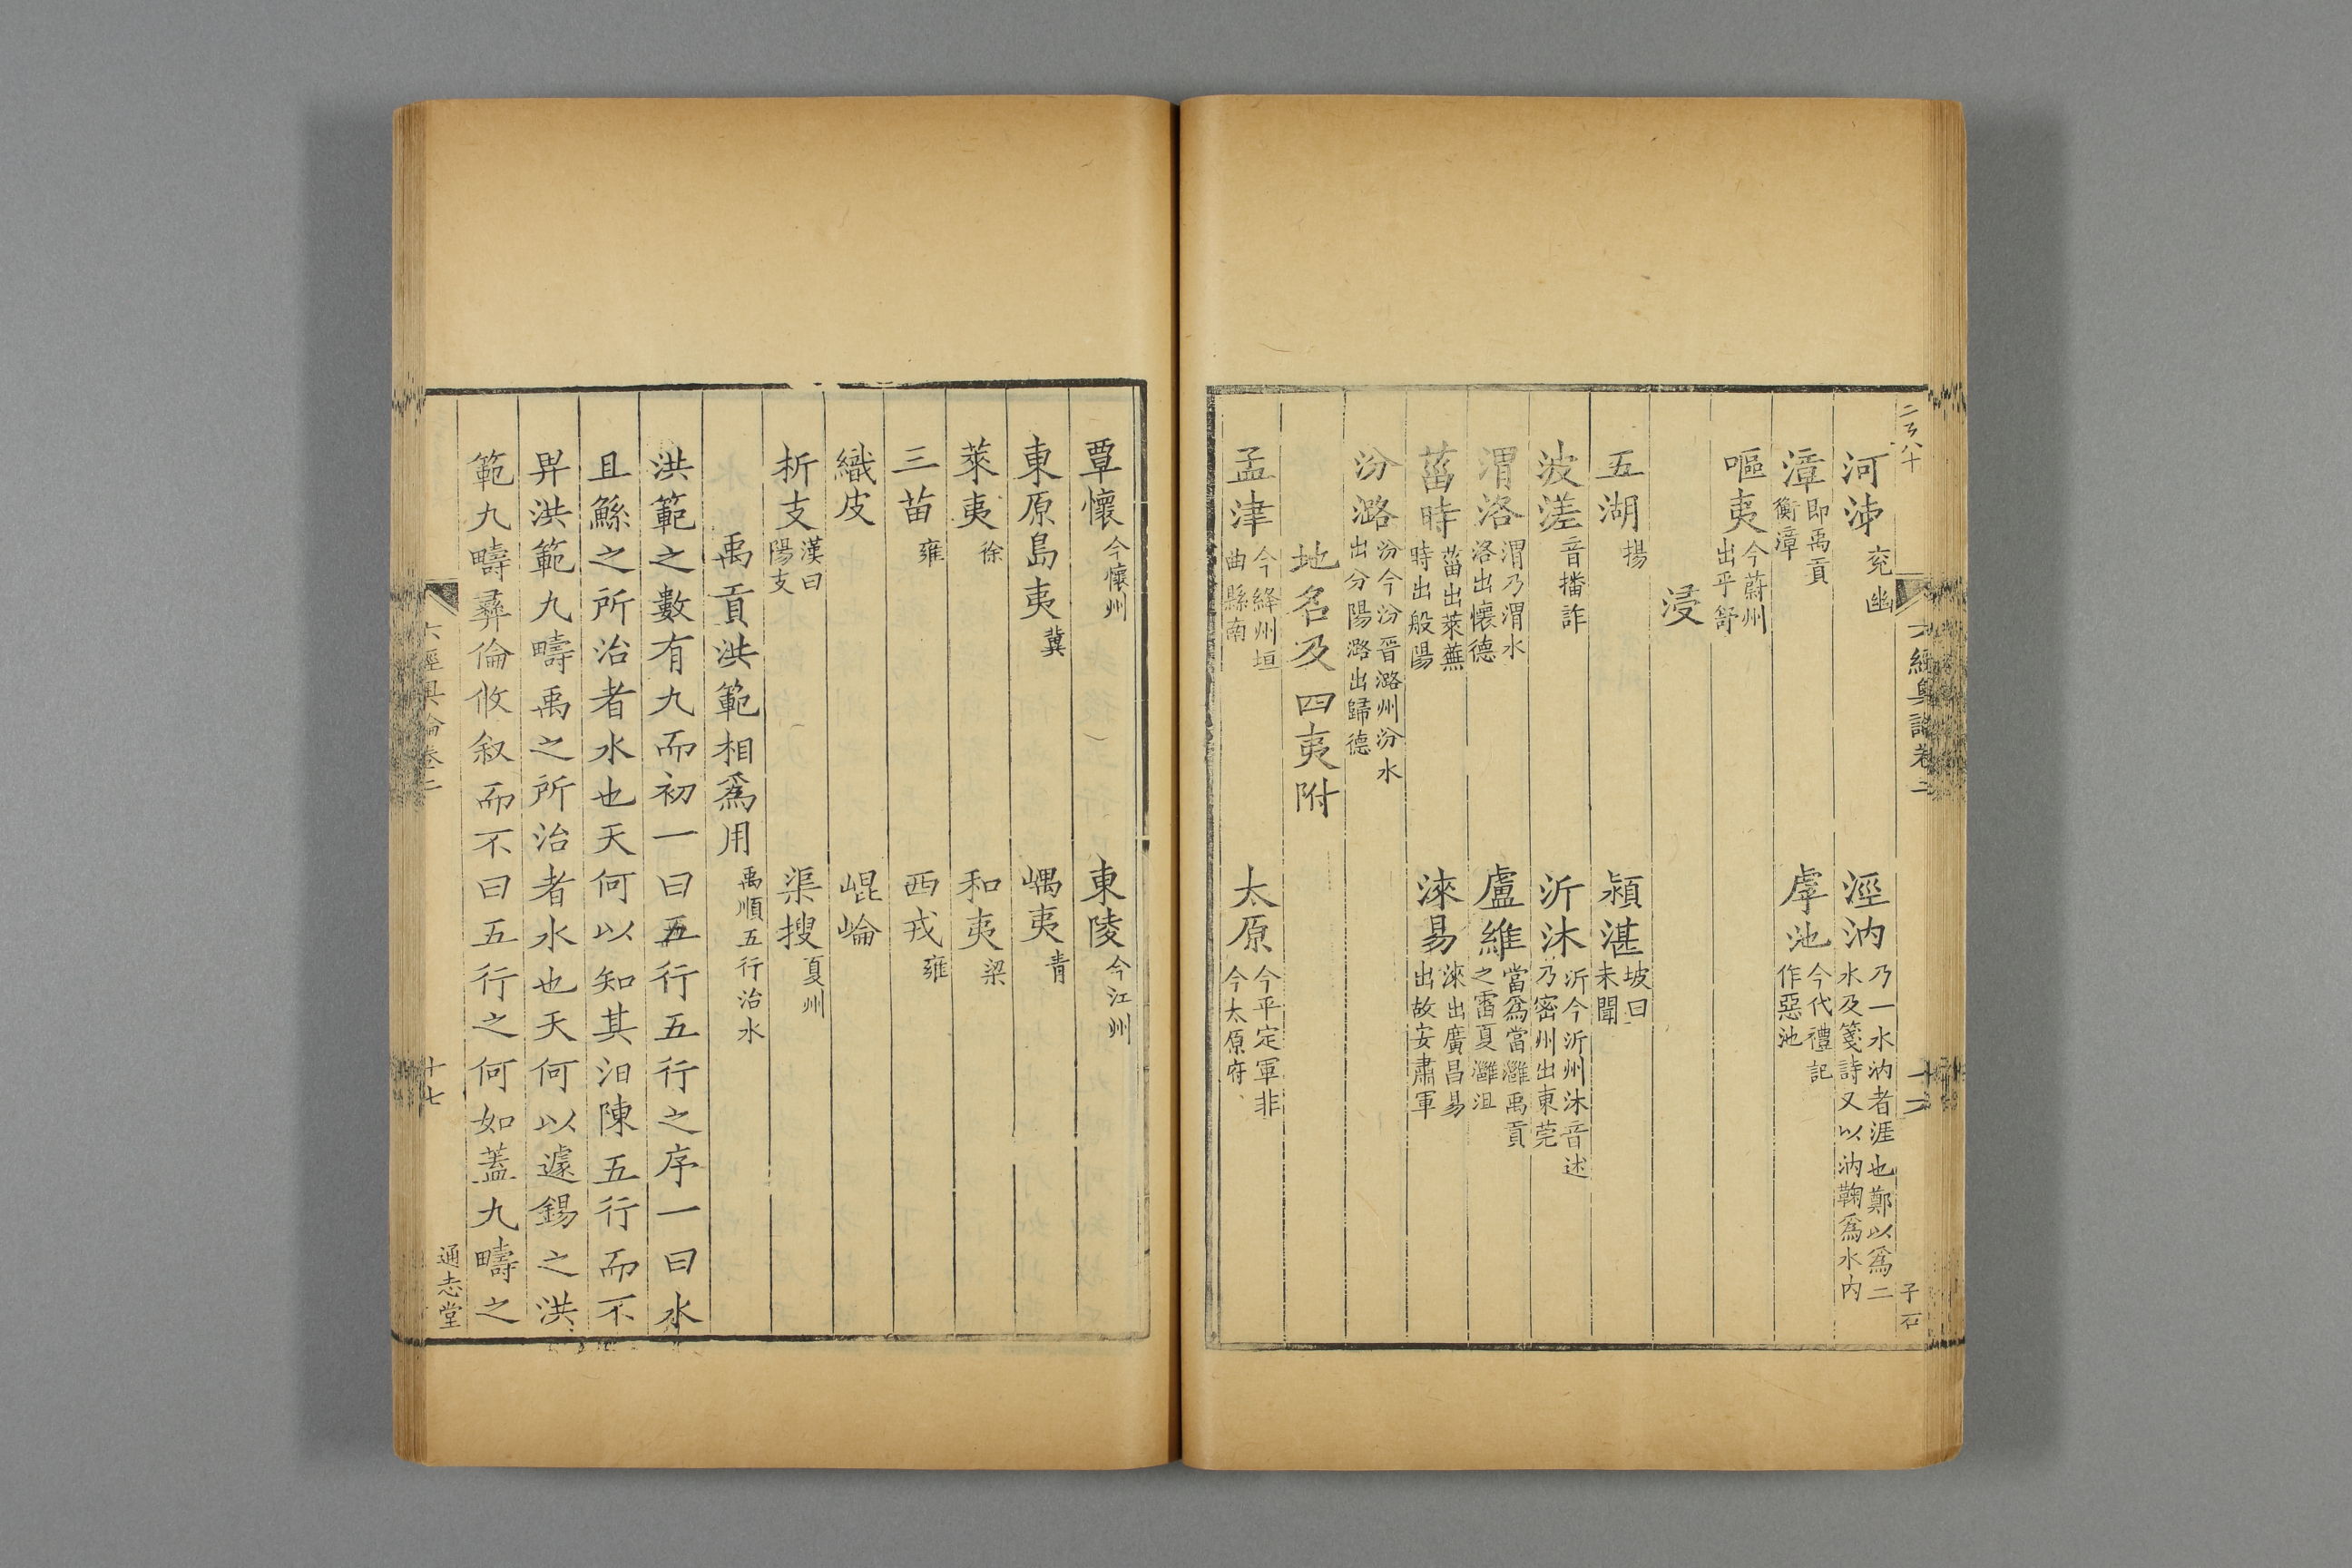 河沛 兖幽 涇汭 乃一水汭者涯也鄭以爲二水及箋詩又以汭鞫爲水内
漳 即禹貢衡漳 虖池 今代禮記作惡池
嘔夷 今蔚州出平舒
浸
五湖 揚 潁湛 坡曰未聞
波溠 音播詐 沂沭 沂今沂州沭音述乃密州出東莞
渭洛 渭乃渭水洛出懷德 盧維 當爲當灉禹貢之雷夏灉沮
菑時 菑出萊蕪時出般陽 淶易 淶出廣昌易出故安肅軍
汾潞 汾今汾晉潞州汾水出分陽潞出歸德
地名及四夷附
孟津 今絳州垣曲縣南 太原 今平定軍非今太原府
覃懷 今懷州 東陵 今江州
東原島夷 冀 嵎夷 青
萊夷 徐 和夷 梁
三苗 雍 西戎 雍
織皮 崐崘
析支 漢曰陽支 渠搜 夏州
禹貢洪範相爲用 禹順五行治水
洪範之數有九而初一曰五行五行之序一曰水
且鯀之所治者水也天何以知其汩陳五行而不
畀洪範九疇禹之所治者水也天何以遽錫之洪
範九疇彝倫攸叙而不曰五行之何如蓋九疇之
六經奥論卷二
十七
通志堂